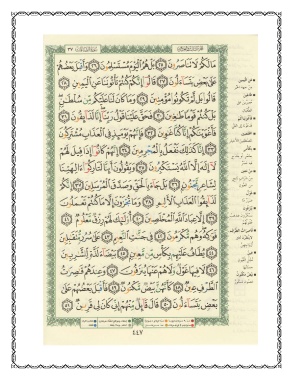 مَا لَكُمْ لَا تَنَاصَرُونَ ٢٥ بَلْ هُمُ ٱلْيَوْمَ مُسْتَسْلِمُونَ ٢٦ وَأَقْبَلَ بَعْضُهُمْ
عَلَىٰ بَعْضٍ يَتَسَآءَلُونَ ٢٧ قَالُوٓا۟ إِنَّكُمْ كُنتُمْ تَأْتُونَنَا عَنِ ٱلْيَمِينِ ٢٨
قَالُوا۟ بَل لَّمْ تَكُونُوا۟ مُؤْمِنِينَ ٢٩ وَمَا كَانَ لَنَا عَلَيْكُم مِّن سُلْطَٰنٍۭ
بَلْ كُنتُمْ قَوْمًا طَٰغِينَ ٣٠ فَحَقَّ عَلَيْنَا قَوْلُ رَبِّنَآ إِنَّا لَذَآئِقُونَ ٣١
فَأَغْوَيْنَٰكُمْ إِنَّا كُنَّا غَٰوِينَ ٣٢ فَإِنَّهُمْ يَوْمَئِذٍ فِى ٱلْعَذَابِ مُشْتَرِكُونَ
٣٣ إِنَّا كَذَٰلِكَ نَفْعَلُ بِٱلْمُجْرِمِينَ ٣٤ إِنَّهُمْ كَانُوٓا۟ إِذَا قِيلَ لَهُمْ
لَآ إِلَٰهَ إِلَّا ٱللَّهُ يَسْتَكْبِرُونَ ٣٥ وَيَقُولُونَ أَئِنَّا لَتَارِكُوٓا۟ ءَالِهَتِنَا
لِشَاعِرٍ مَّجْنُونٍۭ ٣٦ بَلْ جَآءَ بِٱلْحَقِّ وَصَدَّقَ ٱلْمُرْسَلِينَ ٣٧ إِنَّكُمْ
لَذَآئِقُوا۟ ٱلْعَذَابِ ٱلْأَلِيمِ ٣٨ وَمَا تُجْزَوْنَ إِلَّا مَا كُنتُمْ تَعْمَلُونَ
٣٩ إِلَّا عِبَادَ ٱللَّهِ ٱلْمُخْلَصِينَ ٤٠ أُو۟لَٰٓئِكَ لَهُمْ رِزْقٌ مَّعْلُومٌ ٤١
فَوَٰكِهُ وَهُم مُّكْرَمُونَ ٤٢ فِى جَنَّٰتِ ٱلنَّعِيمِ ٤٣ عَلَىٰ سُرُرٍ مُّتَقَٰبِلِينَ
٤٤ يُطَافُ عَلَيْهِم بِكَأْسٍ مِّن مَّعِينٍۭ ٤٥ بَيْضَآءَ لَذَّةٍ لِّلشَّٰرِبِينَ
٤٦ لَا فِيهَا غَوْلٌ وَلَا هُمْ عَنْهَا يُنزَفُونَ ٤٧ وَعِندَهُمْ قَٰصِرَٰتُ
ٱلطَّرْفِ عِينٌ ٤٨ كَأَنَّهُنَّ بَيْضٌ مَّكْنُونٌ ٤٩ فَأَقْبَلَ بَعْضُهُمْ عَلَىٰ
بَعْضٍ يَتَسَآءَلُونَ ٥٠ قَالَ قَآئِلٌ مِّنْهُمْ إِنِّى كَانَ لِى قَرِينٌ ٥١
٤٤٧